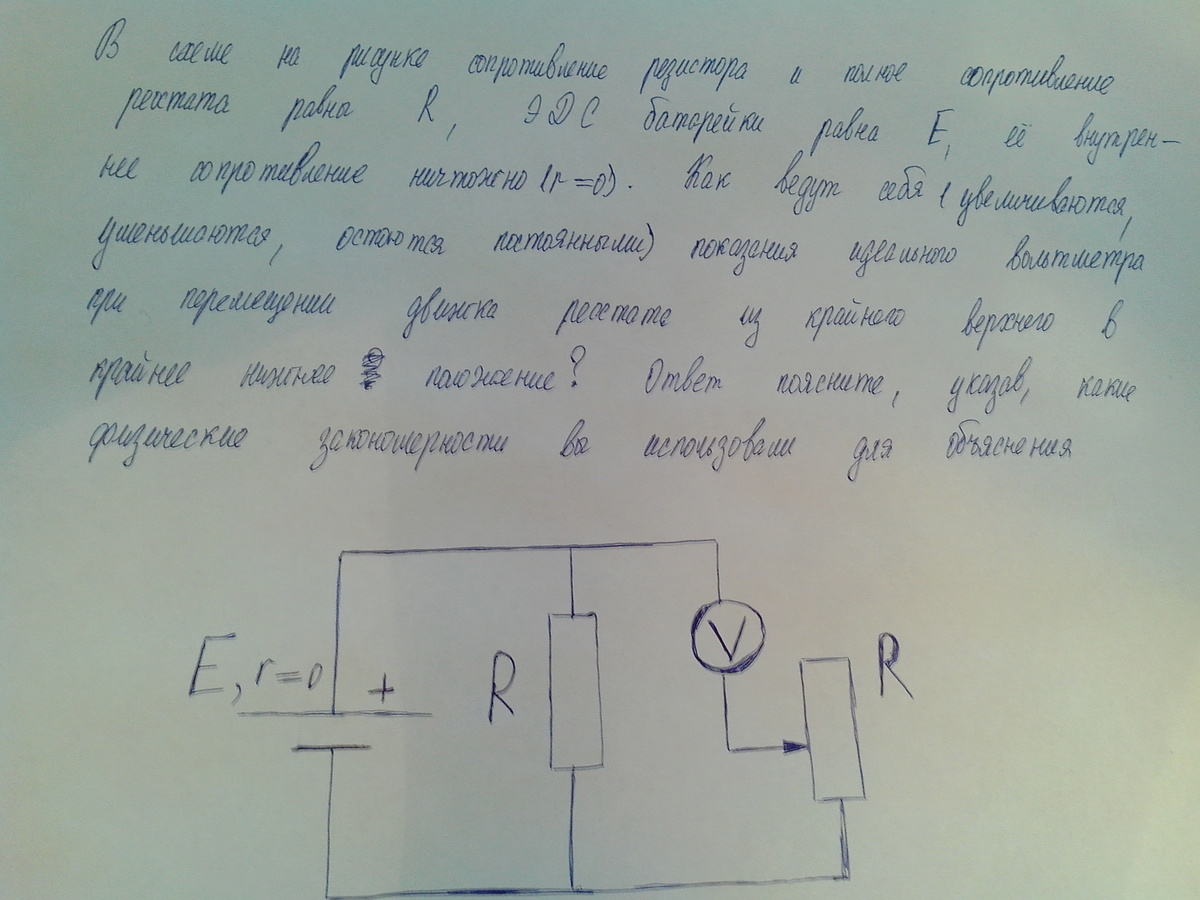 В схеме на рисунке сопротивление резистора и полное сопротивление
реостата равны R, ЭДС батарейки равна E, её внутрен-
нее сопротивление ничтожно (r=0). Как ведут себя (увеличиваются,
уменьшаются, остаются постоянными) показания идеального вольтметра
при перемещении движка реостата из крайнего верхнего в
крайнее нижнее положение? Ответ поясните, указав, какие
физические закономерности вы использовали для объяснения
E, r=0
+
R
V
R